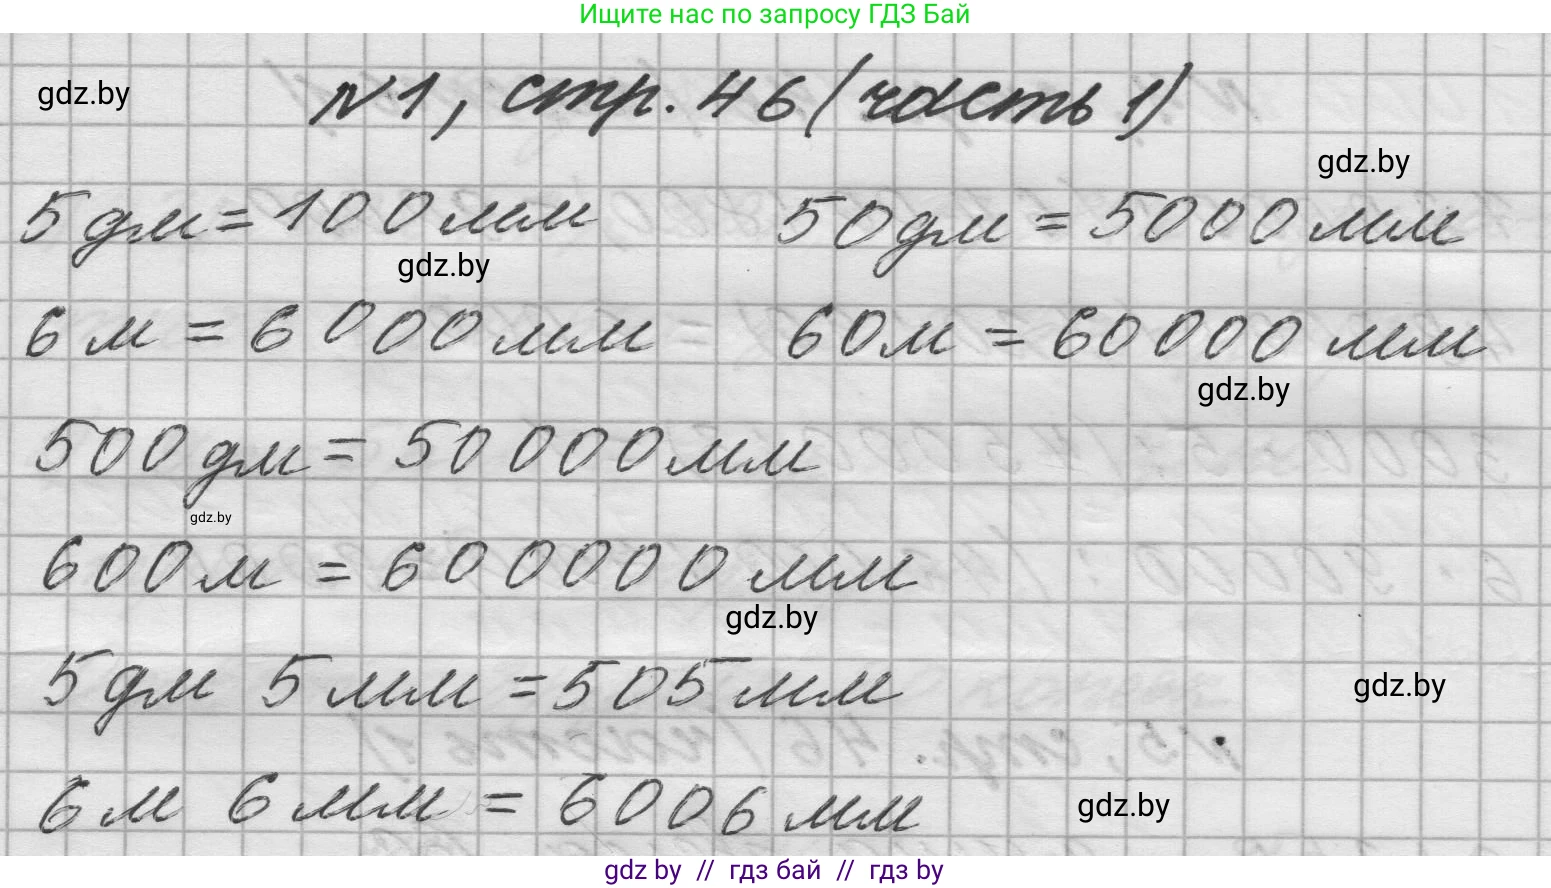 Ищите нас по запросу ГДЗ Бай
gdz.by
№1, стр. 46 (часть 1)
gdz.by
5 дм = 100 мм 50 дм = 5000 мм
gdz.by
6 м = 6000 мм 60 м = 60000 мм
gdz.by
500 дм = 50000 мм
gdz.by
600 м = 600000 мм
gdz.by
5 дм 5 мм = 505 мм
gdz.by
6 м 6 мм = 6006 мм
gdz.by
gdz by // гдз бай // гдз by